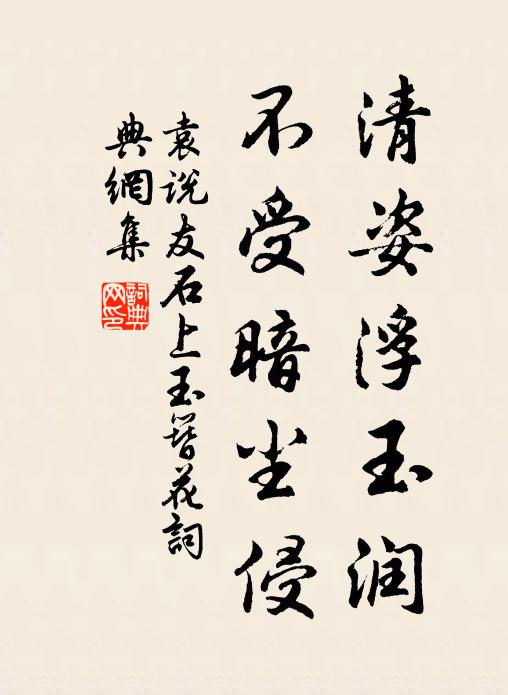 清姿浮玉润
不受暗尘侵
袁说友石上玉簪花詞
典網集
詞典网印